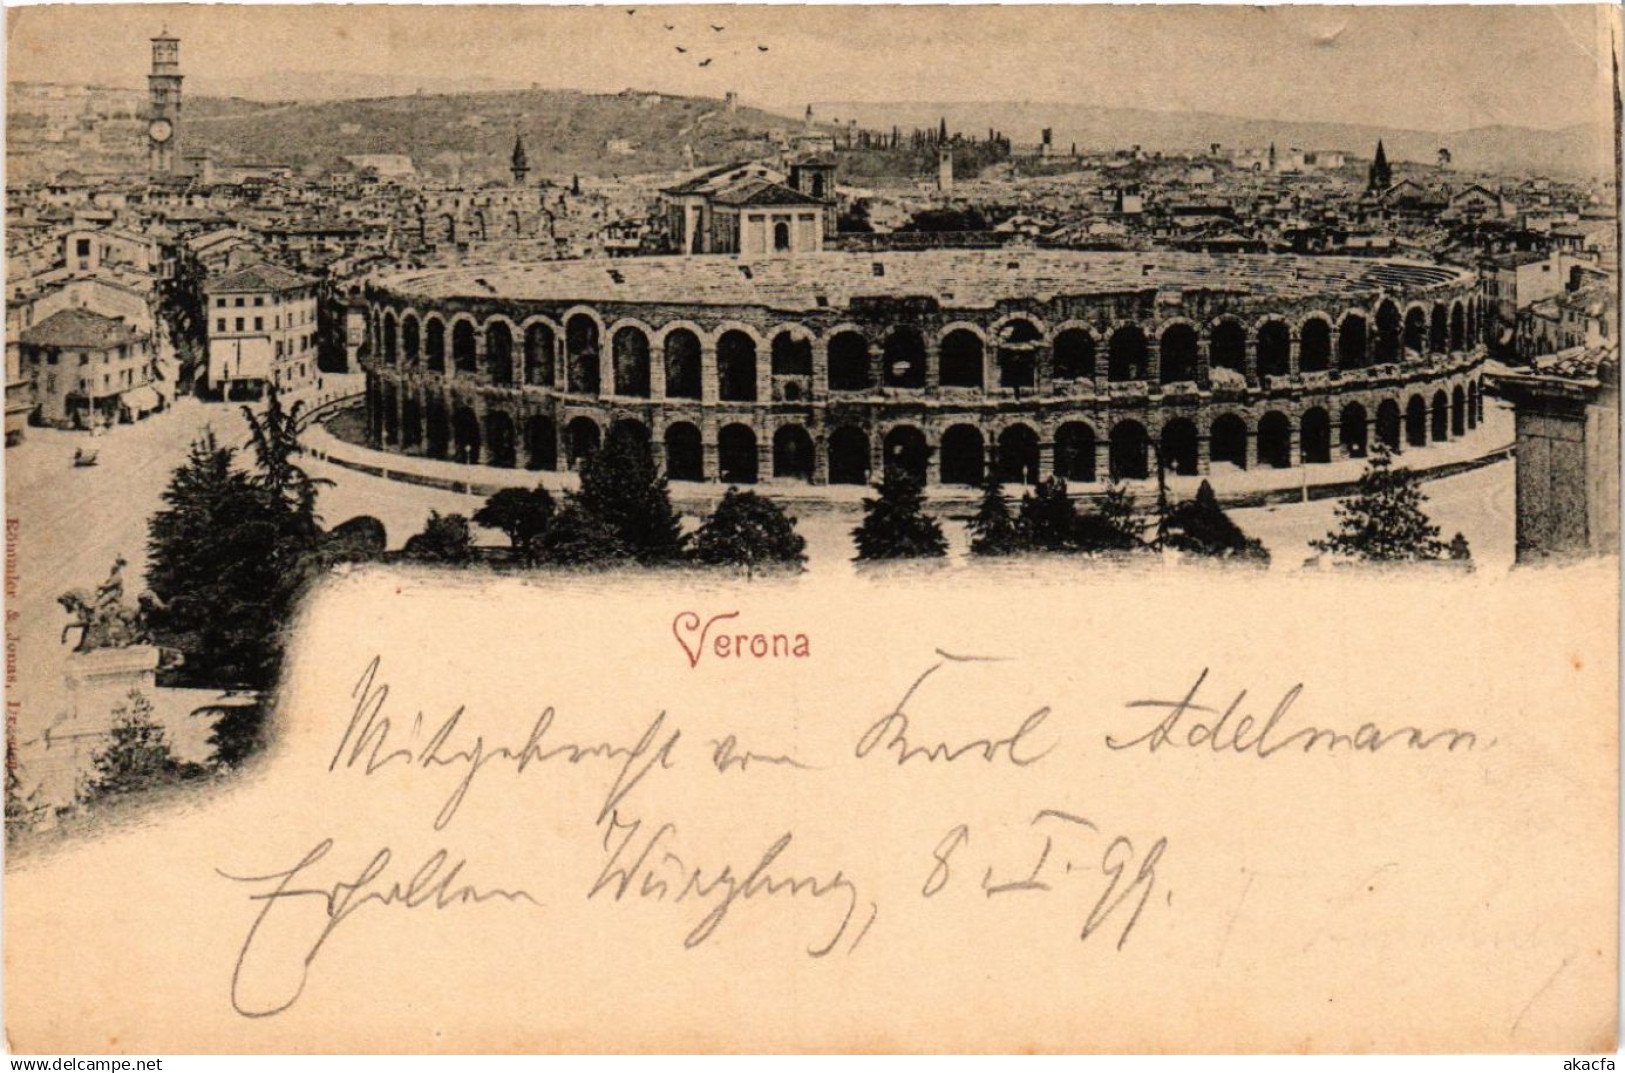 Verona
Mitgebracht von Karl Adelmann
Erhalten Würzburg, 8. I. 99.
Römmler & Jonas, Dresden
www.delcampe.net
akacfa